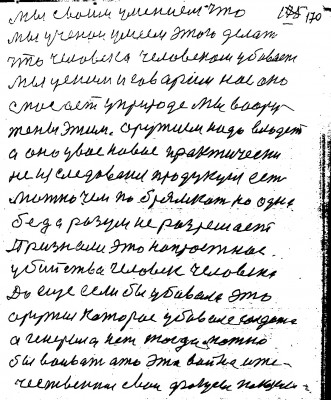 мы своим умением что 170
мы ученои умеем этого делат
что человека человеком убивает
мы ценим и говарим нас оно
спасает у природе мы воору
жены этим. оружием надо владет
а оно увас новае практически
не иследовани продукция ест
можно чем побрямкат но одна
беда разум не разрешает
Признали это напроетнае
убийства человек человека
Да еще если бы убивала это
оружия каторае убивает солдата
а генерала нет тогда можно
бы воеват а то эта война оте-
чественая свои